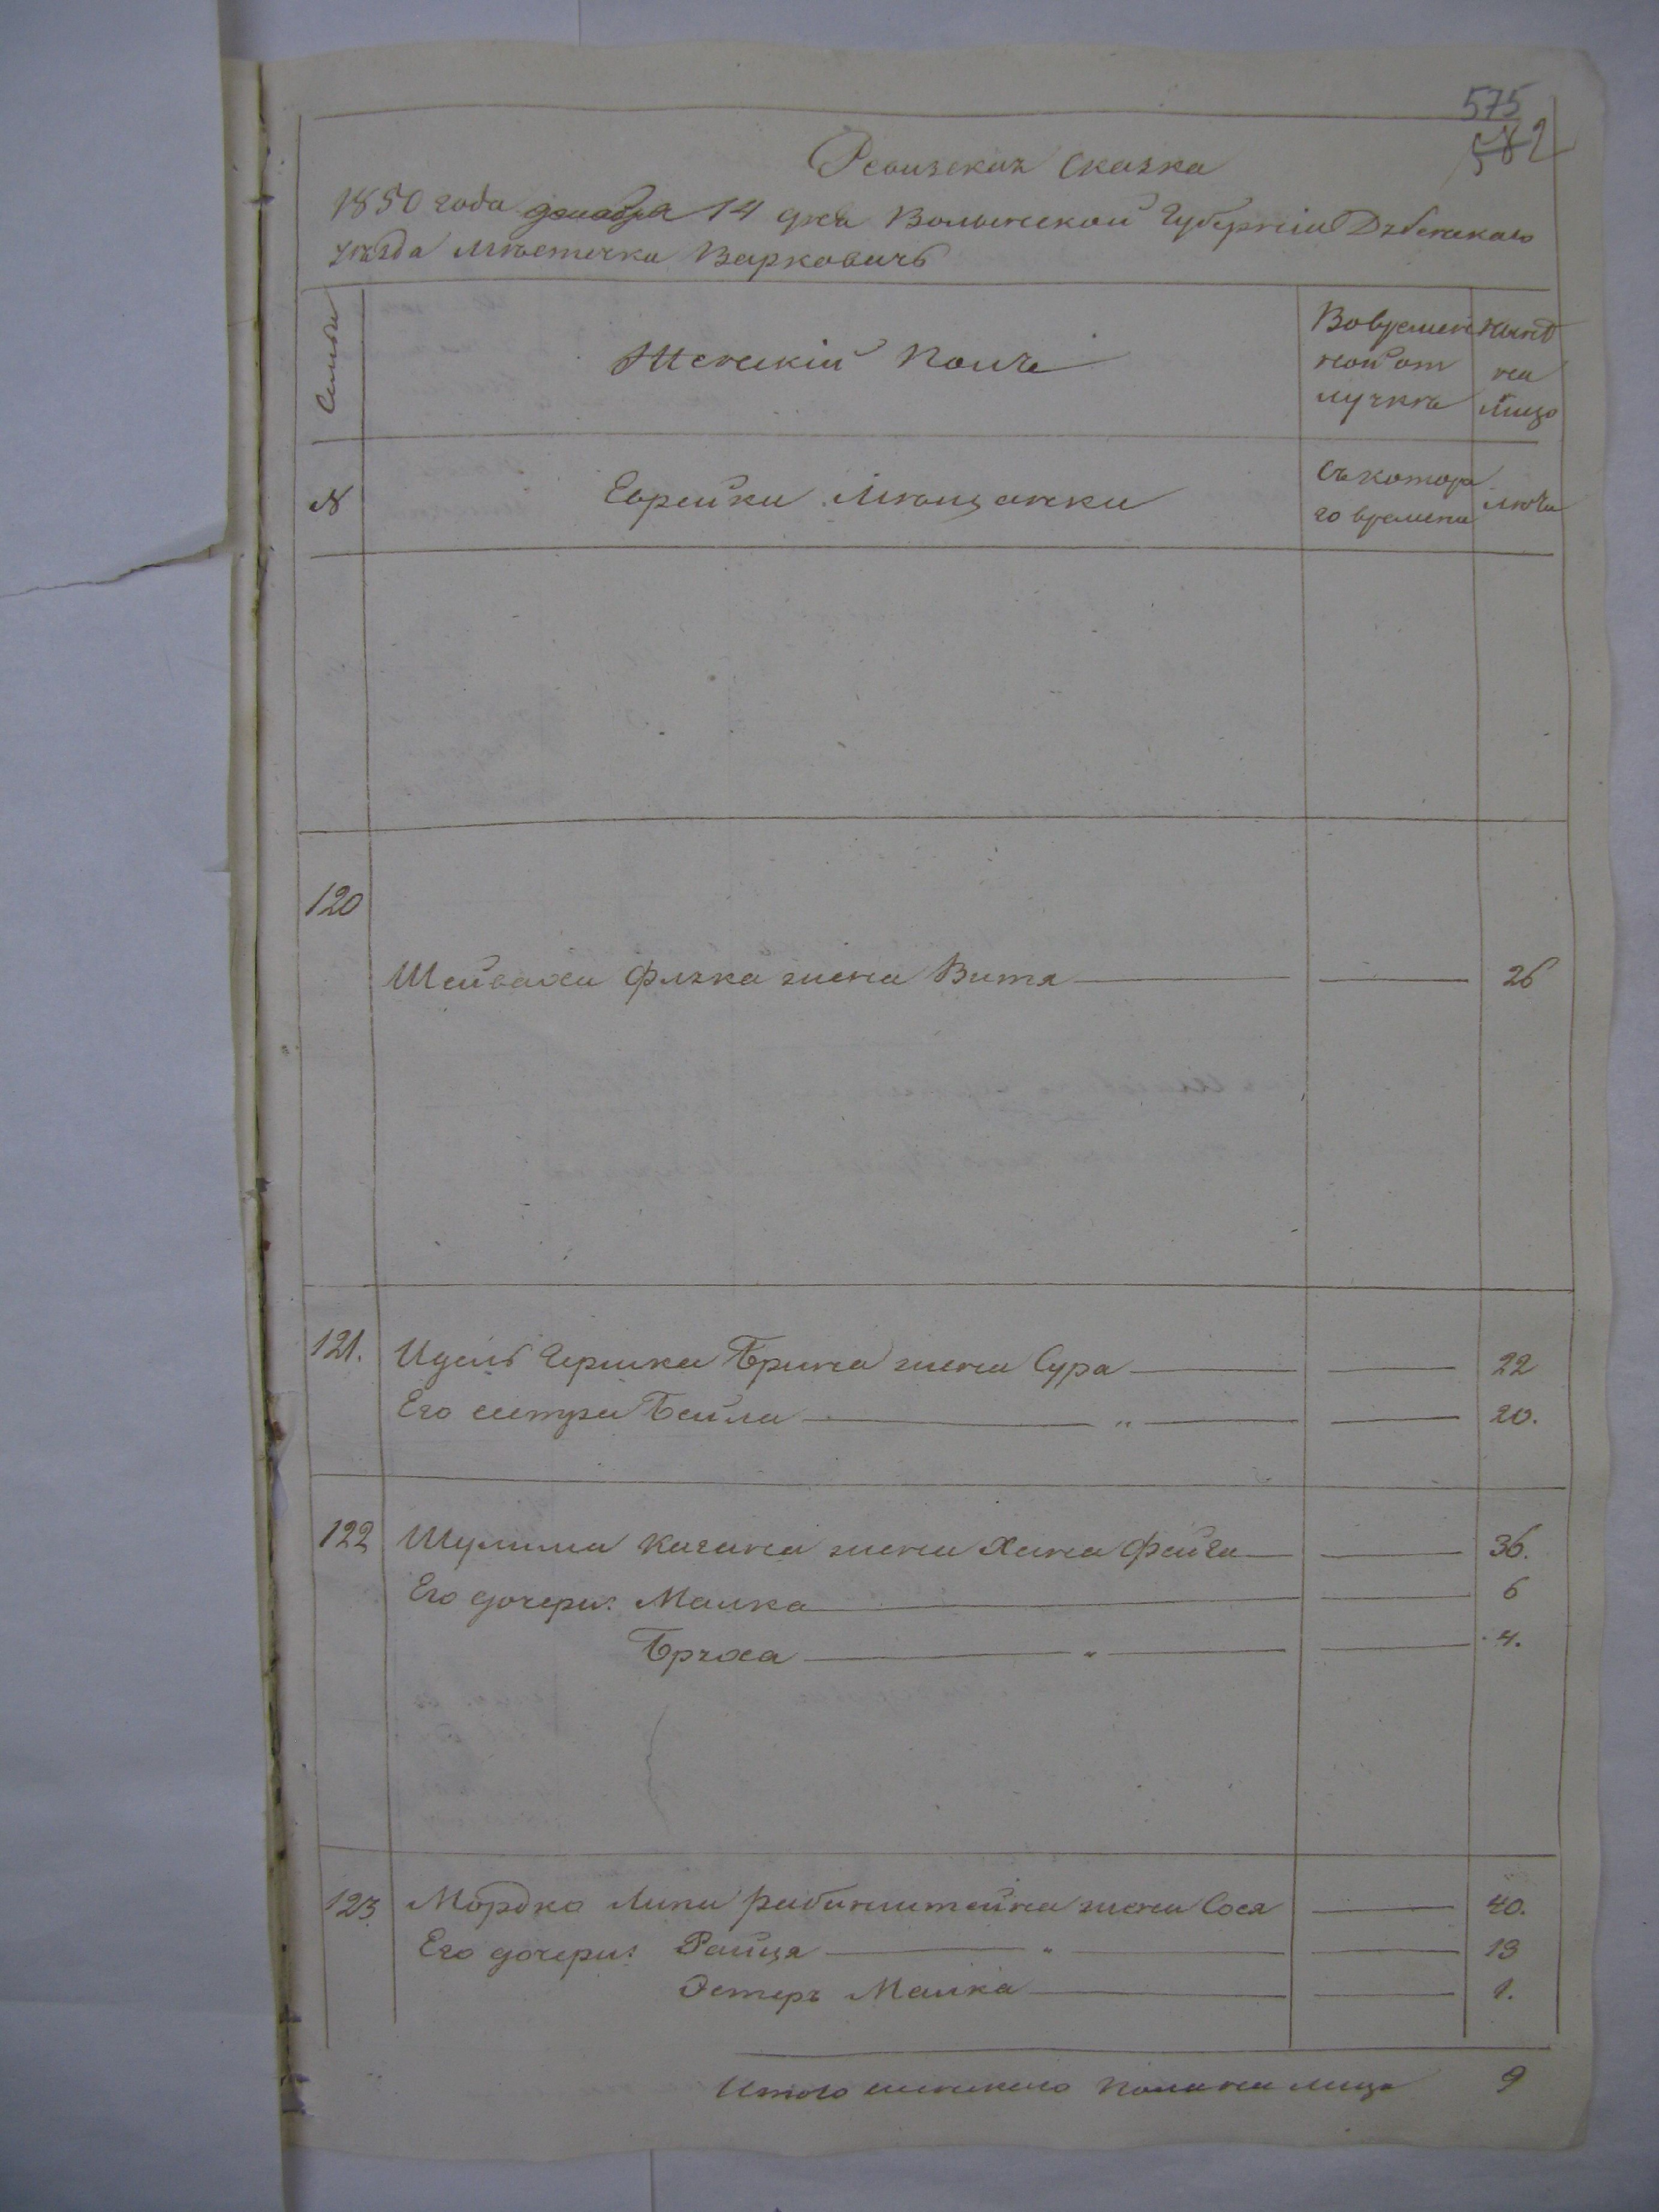 575
582
Ревизская Сказка
1850 года декабря 14 дня Волынской Губерніи Дубенскаго
уѣзда Мѣстечка Варковичь
Семьи
Женскій Полъ
Во времен
ной от
лучкѣ
Нынѣ
на
Лицо
№
Еврейки Мѣщанки
Съ котора
го времени
лѣта
120
Шейвахи Флжка жена Витя 26
121. Идель Гершка Брина жена Сура 22
Его сестра Бейла „ 20.
122 Шулима Кагана жена Хана Фейга 36.
Его дочери: Малка 6
Бруха „ 4.
123 Мордко Липи Рабинштейна жена Сося 40.
Его дочери: Райця „ 13
Эстеръ Малка 1.
Итого женскаго пола на лицо 9